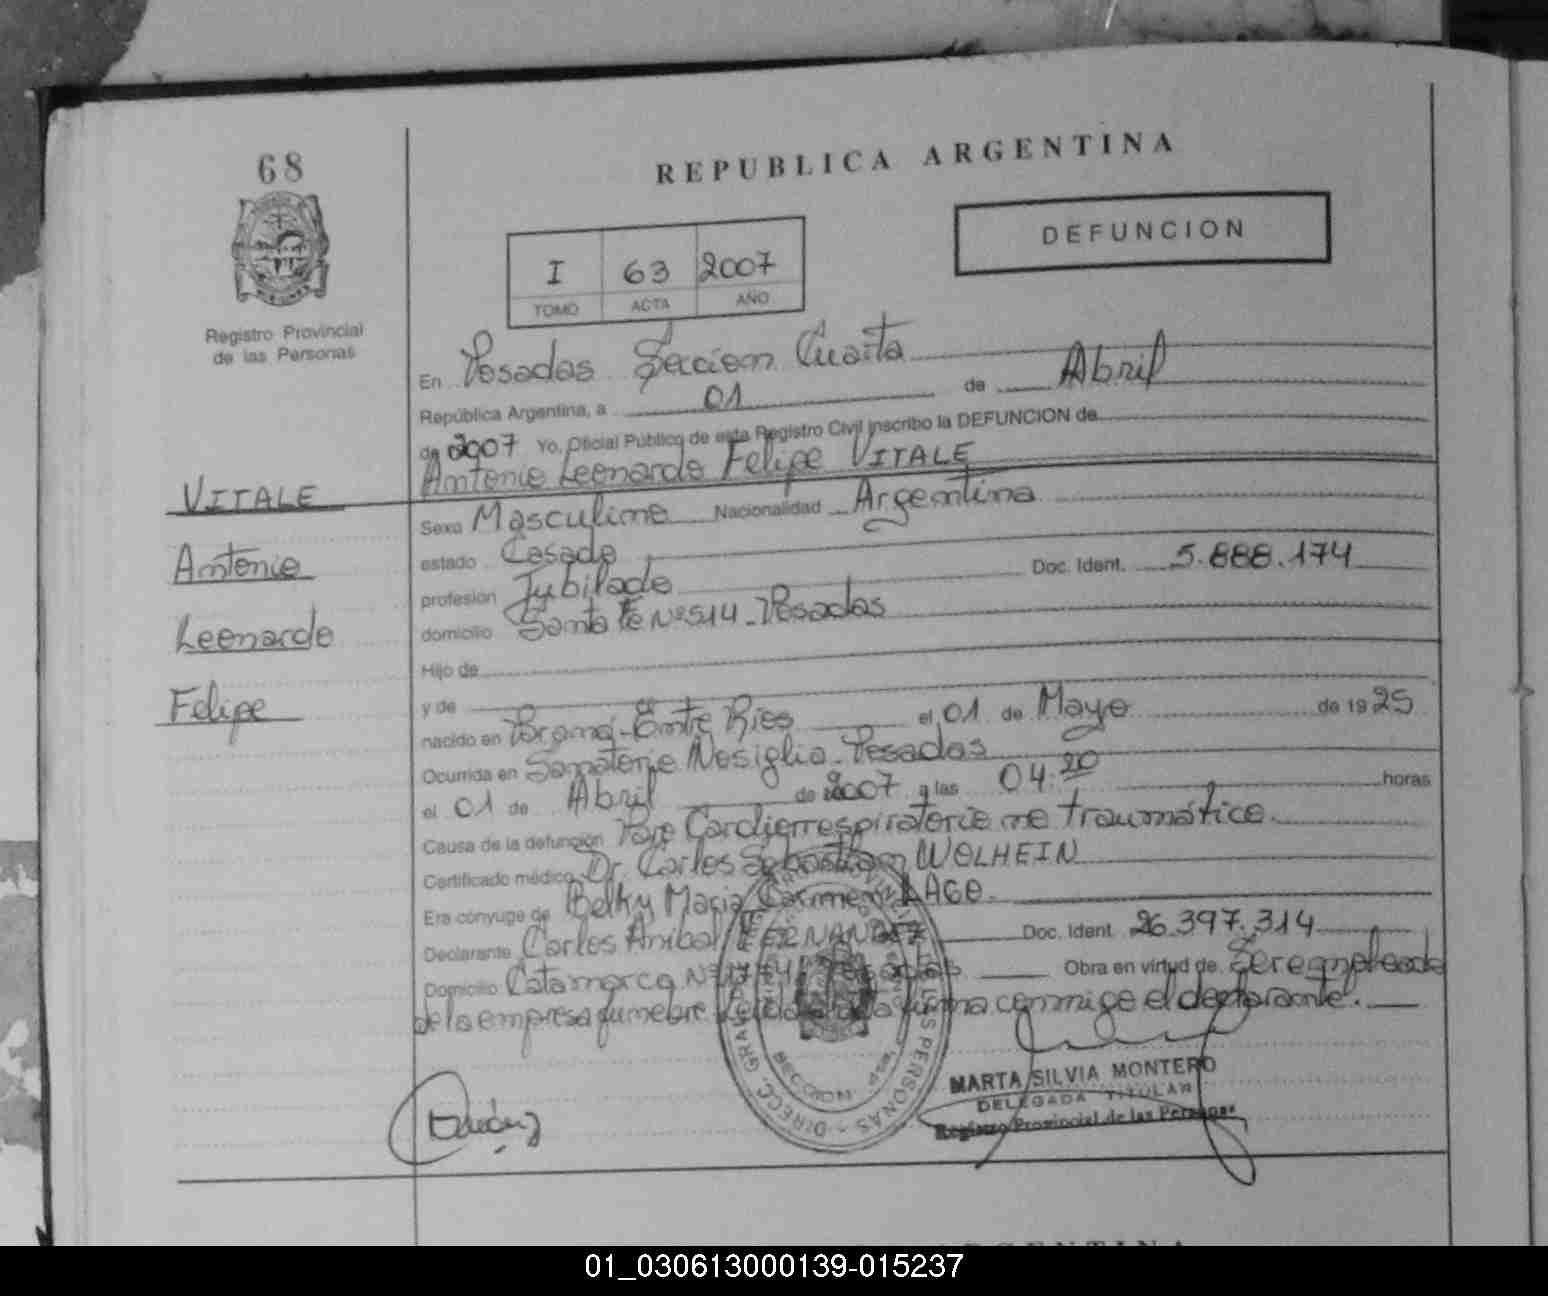 68
REPUBLICA ARGENTINA
DEFUNCION
I 63 2007
TOMO ACTA AÑO
Registro Provincial
de las Personas
En Posadas Sección Cuarta
República Argentina, a 01 de Abril
de 2007 Yo, Oficial Público de este Registro Civil inscribo la DEFUNCION de
Antonio Leonardo Felipe VITALE
VITALE
Antonio
Leonardo
Felipe
Sexo Masculino Nacionalidad Argentina
estado Casado
profesión Jubilado Doc. Ident. 5.888.174
domicilio Santa Fe Nº 514 - Posadas
Hijo de
y de
nacido en Paraná - Entre Ríos el 01 de Mayo de 1925
Ocurrida en Sanatorio Nosiglia - Posadas
el 01 de Abril de 2007 a las 04:20 horas
Causa de la defunción Paro Cardiorrespiratorio no traumático.
Certificado médico Dr. Carlos Sebastian WOLHEIN
Era cónyuge de Belky Maria Carmen LAGO.
Declarante Carlos Anibal FERNANDEZ Doc. Ident. 26.397.314
Domicilio Catamarca Nº Posadas Obra en virtud de Ser empleado
de la empresa fúnebre. Leída el acta firma conmigo el declarante.
MARTA SILVIA MONTERO
DELEGADA TITULAR
Registro Provincial de las Personas
01_030613000139-015237